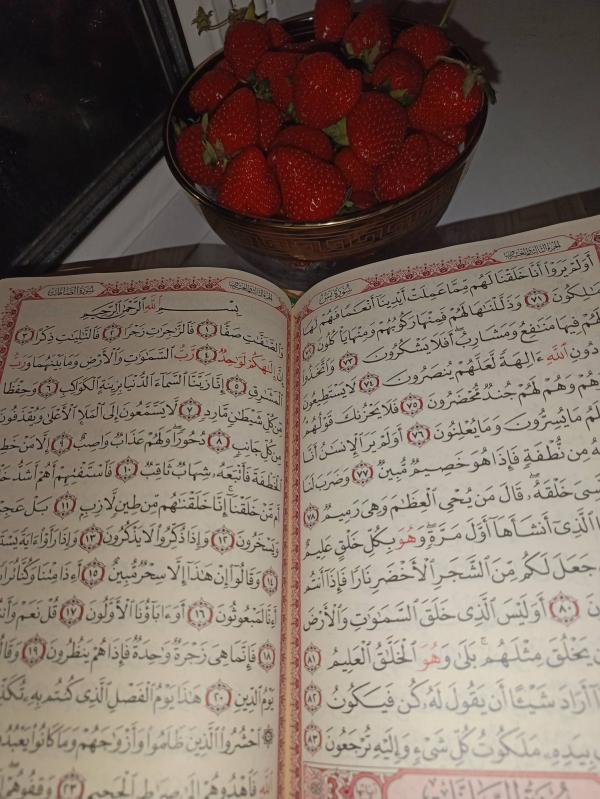 الجزء الثالث والعشرون
سورة يس
أَوَلَمْ يَرَوْا أَنَّا خَلَقْنَا لَهُم مِّمَّا عَمِلَتْ أَيْدِينَا أَنْعَامًا فَهُمْ لَهَا
مَالِكُونَ ٧١ وَذَلَّلْنَاهَا لَهُمْ فَمِنْهَا رَكُوبُهُمْ وَمِنْهَا يَأْكُلُونَ ٧٢
لَهُمْ فِيهَا مَنَافِعُ وَمَشَارِبُ أَفَلَا يَشْكُرُونَ ٧٣ وَاتَّخَذُوا
دُونِ اللَّهِ آلِهَةً لَّعَلَّهُمْ يُنصَرُونَ ٧٤ لَا يَسْتَطِيعُونَ
هُمْ وَهُمْ لَهُمْ جُندٌ مُّحْضَرُونَ ٧٥ فَلَا يَحْزُنكَ قَوْلُهُمْ
لَمُ مَا يُسِرُّونَ وَمَا يُعْلِنُونَ ٧٦ أَوَلَمْ يَرَ الْإِنسَانُ أَنَّا
هُ مِن نُّطْفَةٍ فَإِذَا هُوَ خَصِيمٌ مُّبِينٌ ٧٧ وَضَرَبَ لَنَا
سِيَ خَلْقَهُ قَالَ مَن يُحْيِ الْعِظَامَ وَهِيَ رَمِيمٌ ٧٨
ا الَّذِي أَنشَأَهَا أَوَّلَ مَرَّةٍ وَهُوَ بِكُلِّ خَلْقٍ عَلِيمٌ
جَعَلَ لَكُم مِّنَ الشَّجَرِ الْأَخْضَرِ نَارًا فَإِذَا أَنتُم
نَ ٨٠ أَوَلَيْسَ الَّذِي خَلَقَ السَّمَاوَاتِ وَالْأَرْضَ
ن يَخْلُقَ مِثْلَهُم بَلَى وَهُوَ الْخَلَّاقُ الْعَلِيمُ ٨١
ا أَرَادَ شَيْئًا أَن يَقُولَ لَهُ كُن فَيَكُونُ ٨٢
بِيَدِهِ مَلَكُوتُ كُلِّ شَيْءٍ وَإِلَيْهِ تُرْجَعُونَ ٨٣
سورة الصافات
الجزء الثالث والعشرون
سورة الصافات
بِسْمِ اللَّهِ الرَّحْمَنِ الرَّحِيمِ
وَالصَّافَّاتِ صَفًّا ١ فَالزَّاجِرَاتِ زَجْرًا ٢ فَالتَّالِيَاتِ ذِكْرًا ٣
إِنَّ إِلَهَكُمْ لَوَاحِدٌ ٤ رَّبُّ السَّمَاوَاتِ وَالْأَرْضِ وَمَا بَيْنَهُمَا وَرَبُّ
الْمَشَارِقِ ٥ إِنَّا زَيَّنَّا السَّمَاءَ الدُّنْيَا بِزِينَةٍ الْكَوَاكِبِ ٦ وَحِفْظًا
مِّن كُلِّ شَيْطَانٍ مَّارِدٍ ٧ لَّا يَسَّمَّعُونَ إِلَى الْمَلَإِ الْأَعْلَى وَيُقْذَفُونَ
مِن كُلِّ جَانِبٍ ٨ دُحُورًا وَلَهُمْ عَذَابٌ وَاصِبٌ ٩ إِلَّا مَنْ خَطِ
الْخَطْفَةَ فَأَتْبَعَهُ شِهَابٌ ثَاقِبٌ ١٠ فَاسْتَفْتِهِمْ أَهُمْ أَشَدُّ خَ
أَم مَّنْ خَلَقْنَا إِنَّا خَلَقْنَاهُم مِّن طِينٍ لَّازِبٍ ١١ بَلْ عَجِ
وَيَسْخَرُونَ ١٢ وَإِذَا ذُكِّرُوا لَا يَذْكُرُونَ ١٣ وَإِذَا رَأَوْا آيَةً يَسْتَ
١٤ وَقَالُوا إِنْ هَذَا إِلَّا سِحْرٌ مُّبِينٌ ١٥ أَءِذَا مِتْنَا وَكُنَّا تُرَابً
أَءِنَّا لَمَبْعُوثُونَ ١٦ أَوَءَابَاؤُنَا الْأَوَّلُونَ ١٧ قُلْ نَعَمْ وَأَنتُ
١٨ فَإِنَّمَا هِيَ زَجْرَةٌ وَاحِدَةٌ فَإِذَا هُمْ يَنظُرُونَ ١٩ وَقَالُ
يَوْمُ الدِّينِ ٢٠ هَذَا يَوْمُ الْفَصْلِ الَّذِي كُنتُم بِهِ تُكَذِّ
احْشُرُوا الَّذِينَ ظَلَمُوا وَأَزْوَاجَهُمْ وَمَا كَانُوا يَعْبُدُ
اللَّهِ فَاهْدُوهُمْ إِلَى صِرَاطِ الْجَحِيمِ ٢٣ وَقِفُوهُمْ